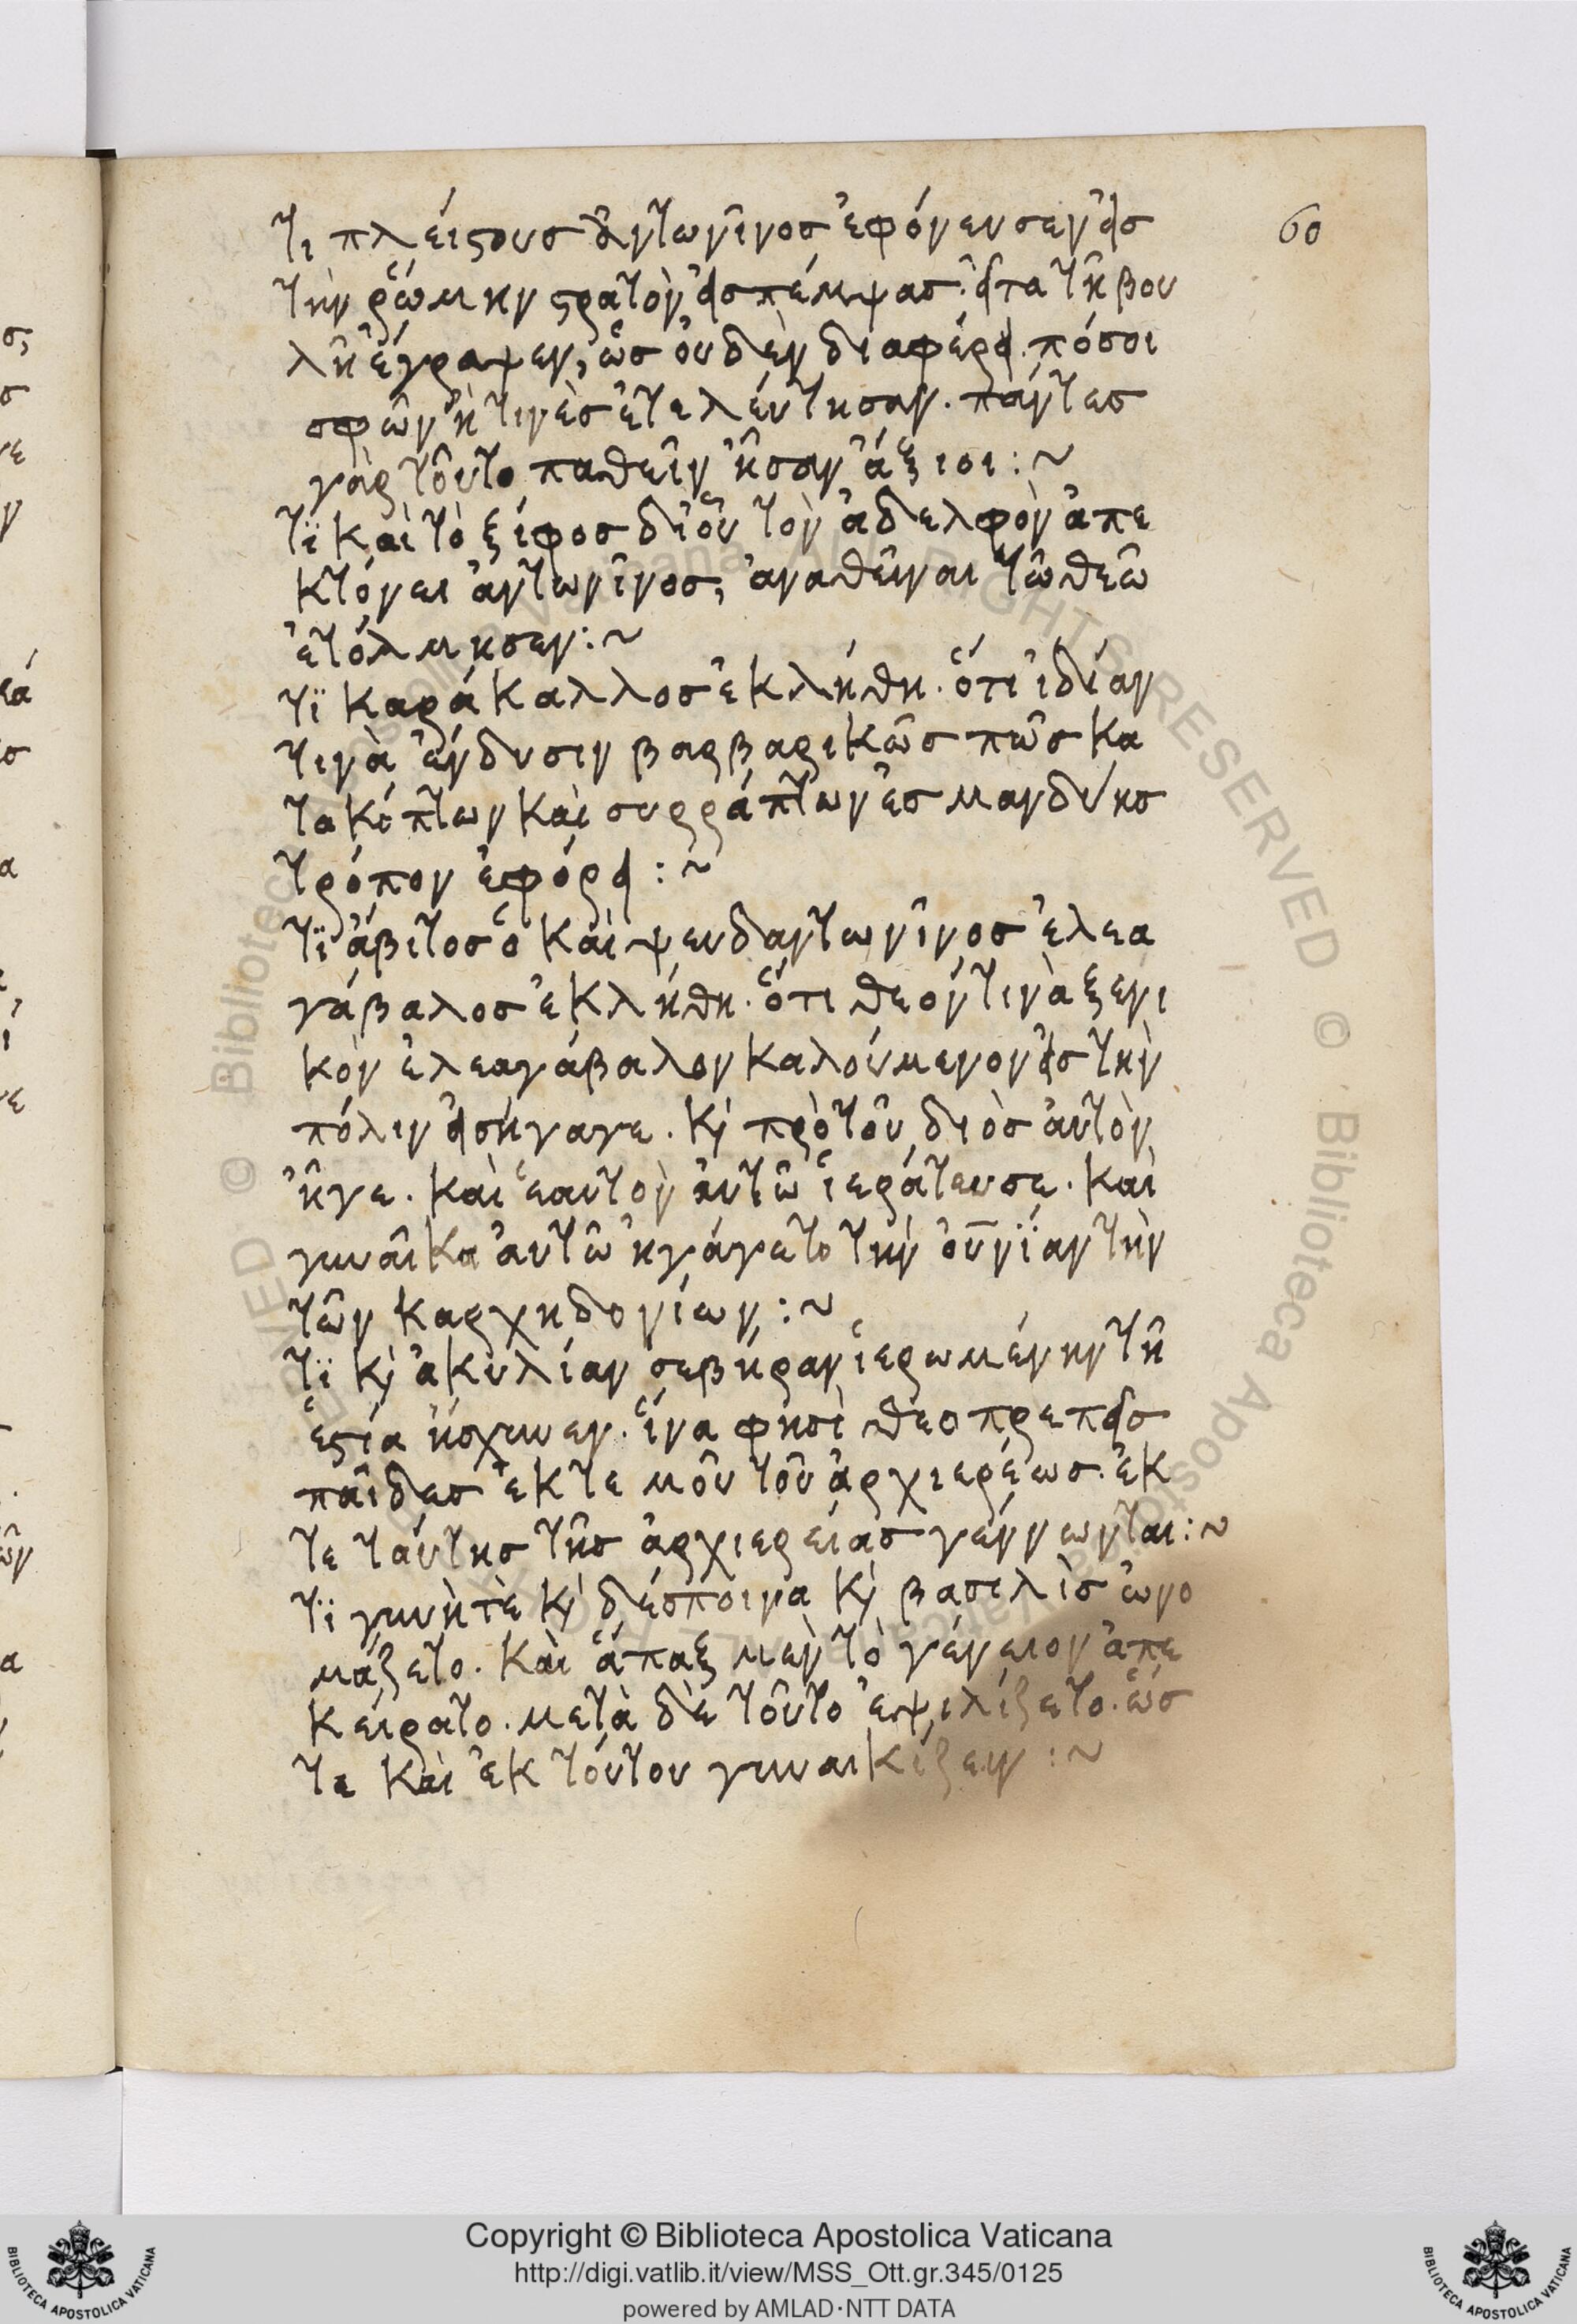 τι πλείστους ἀντωνῖνος ἐφόνευσεν εἰς
τὴν ῥώμην στρατὸν εἰσπέμψας. εἶτα τῆ βου
λῆ ἔγραψεν, ὡς οὐδὲν διαφέρει. πόσοι
σφῶν ἢ τινὲς ἐτελεύτησαν. πάντες
γὰρ τοῦτο παθεῖν ἦσαν ἄξιοι :~
τϊ καὶ τὸ ξίφος δι' οὗ τὸν ἀδελφὸν ἀπε
κτόνει ἀντωνῖνος, ἀναθεῖναι τῶ θεῶ
ἐτόλμησεν :~
τϊ καράκαλλος ἐκλήθη. ὅτι ἰδίαν
τινὰ ἔνδυσιν βαρβαρικῶς πῶς κα
τακόπτων καὶ συρράπτων ἐς μανδύης
τρόπον ἐφόρει :~
τϊ ἄβιτος ὁ καὶ ψευδαντωνῖνος ἐλεα
γάβαλος ἐκλήθη. ὅτι θεόν τινὰ ξενι
κὸν ἐλεαγάβαλον καλούμενον εἰς τὴν
πόλιν εἰσήγαγε. κὶ πρὸ τοῦ διὸς αὐτὸν
ἦγε. καὶ ἑαυτὸν αὐτῶ ἱεράτευσε. καὶ
γυναῖκα αὐτῶ ἠγάγετο τὴν οὐνΐαν τὴν
τῶν καρχηδονίων :~
τϊ κὶ ἀκυλίαν σεβήραν ἱερωμένην τῆ
ἑστία ἤσχυνεν. ἵνα φησὶ θεοπρεπεῖς
παῖδες ἔκ τε μοῦ τοῦ ἀρχιερέως. ἔκ
τε ταύτης τῆς ἀρχιερείας γέννωνται :~
τϊ γυνὴ τὲ κὶ δέσποινα κὶ βασιλὶς ὠνο
μάζετο. καὶ ἅπαξ μὲν τὸ γένειον ἀπε
κείρατο. μετὰ δὲ τοῦτο ἐψιλίζετο. ὥσ
τε καὶ ἐκ τούτου γυναικίζειν :~
60
Copyright © Biblioteca Apostolica Vaticana
http://digi.vatlib.it/view/MSS_Ott.gr.345/0125
powered by AMLAD·NTT DATA